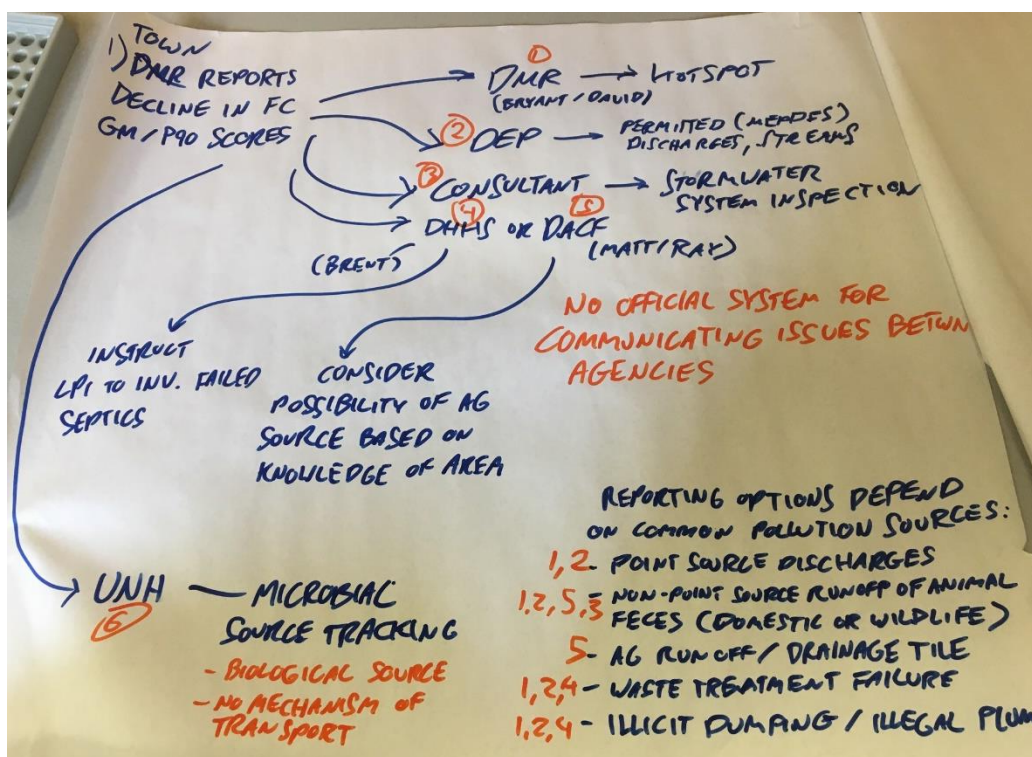 TOWN
1) DMR REPORTS
DECLINE IN FC
GM/P90 SCORES
1
DMR → HOTSPOT
(BRYANT/DAVID)
2 DEP → PERMITTED (MEPDES)
DISCHARGES, STREAMS
3 CONSULTANT → STORMWATER
SYSTEM INSPECTION
4 5
DHHS OR DACF
(BRENT) (MATT/RAY)
INSTRUCT
LPI TO INV. FAILED
SEPTICS
CONSIDER
POSSIBILITY OF AG
SOURCE BASED ON
KNOWLEDGE OF AREA
NO OFFICIAL SYSTEM FOR
COMMUNICATING ISSUES BETWN
AGENCIES
UNH — MICROBIAL
6 SOURCE TRACKING
- BIOLOGICAL SOURCE
- NO MECHANISM OF
TRANSPORT
REPORTING OPTIONS DEPEND
ON COMMON POLLUTION SOURCES:
1,2 - POINT SOURCE DISCHARGES
1,2,5,3 - NON-POINT SOURCE RUNOFF OF ANIMAL
FECES (DOMESTIC OR WILDLIFE)
5 - AG RUNOFF/DRAINAGE TILE
1,2,4 - WASTE TREATMENT FAILURE
1,2,4 - ILLICIT DUMPING / ILLEGAL PLUM